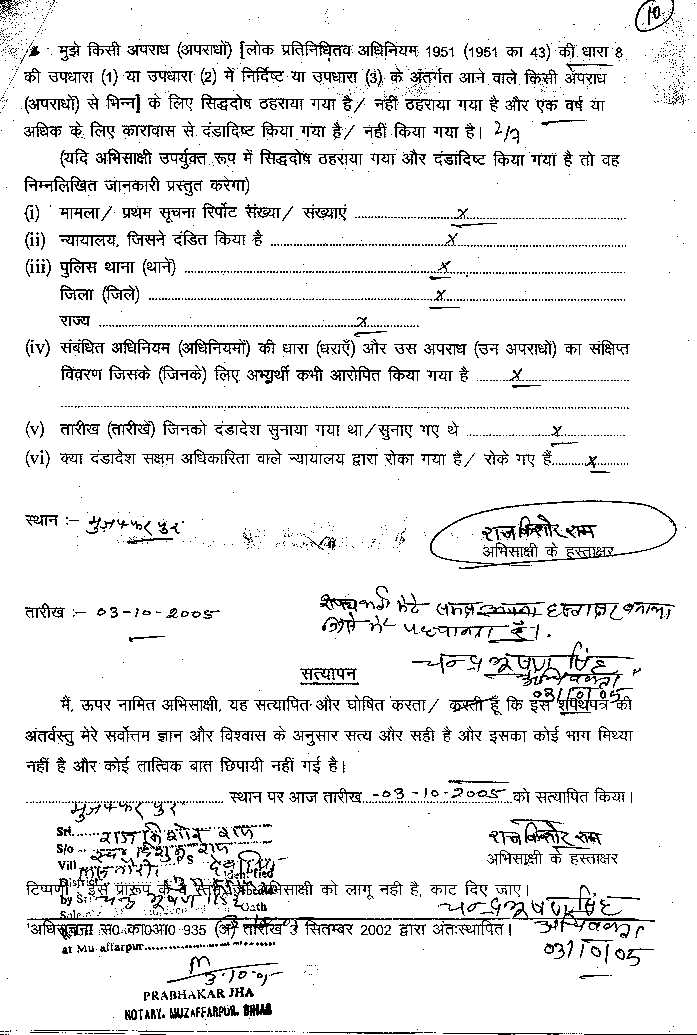 10
मुझे किसी अपराध (अपराधों) [लोक प्रतिनिधितव अधिनियम 1951 (1951 का 43) की धारा 8
की उपधारा (1) या उपधारा (2) में निर्दिष्ट या उपधारा (3) के अंतर्गत आने वाले किसी अपराध
(अपराधों) से भिन्न] के लिए सिद्धदोष ठहराया गया है/ नहीं ठहराया गया है और एक वर्ष या
अधिक के लिए कारावास से दंडादिष्ट किया गया है/ नहीं किया गया है।
(यदि अभिसाक्षी उपर्युक्त रूप में सिद्धदोष ठहराया गया और दंडादिष्ट किया गया है तो वह
निम्नलिखित जानकारी प्रस्तुत करेगा)
(i) मामला/ प्रथम सूचना रिर्पोट संख्या/ संख्याएं x
(ii) न्यायालय, जिसने दंडित किया है x
(iii) पुलिस थाना (थाने) x
जिला (जिले) x
राज्य x
(iv) संबंधित अधिनियम (अधिनियमों) की धारा (धराएँ) और उस अपराध (उन अपराधों) का संक्षिप्त
विवरण जिसके (जिनके) लिए अभ्यर्थी कभी आरोपित किया गया है x
(v) तारीख (तारीखें) जिनको दंडादेश सुनाया गया था/सुनाए गए थे x
(vi) क्या दंडादेश सक्षम अधिकारिता वाले न्यायालय द्वारा रोका गया है/ रोके गए हैं x
स्थान :– मुजफ्फरपुर
राजकिशोर राम
अभिसाक्षी के हस्ताक्षर
तारीख :– 03-10-2005
चन्द्रभूषण सिंह
अधिवक्ता
03/10/05
सत्यापन
मैं, ऊपर नामित अभिसाक्षी, यह सत्यापित और घोषित करता/ करती हूँ कि इस शपथपत्र की
अंतर्वस्तु मेरे सर्वोत्तम ज्ञान और विश्वास के अनुसार सत्य और सही है और इसका कोई भाग मिथ्या
नहीं है और कोई तात्विक बात छिपायी नहीं गई है।
मुजफ्फरपुर स्थान पर आज तारीख 03-10-2005 को सत्यापित किया।
Sri राज किशोर राम
S/o
Vill
राजकिशोर राम
अभिसाक्षी के हस्ताक्षर
टिप्पणी : इस प्रारूप के अभिसाक्षी को लागू नही है, काट दिए जाए।
by Sri चन्द्र भूषण सिंह Oath
चन्द्रभूषण सिंह
अधिवक्ता
03/10/05
अधिसूचना स0 का0आ0 935 (अ) तारीख 3 सितम्बर 2002 द्वारा अंतःस्थापित।
at Muzaffarpur
3-10-05
PRABHAKAR JHA
NOTARY, MUZAFFARPUR, BIHAR